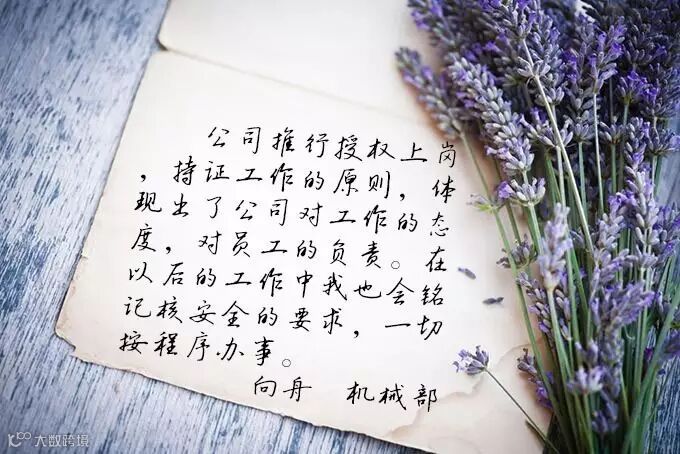 公司推行授权上岗
，持证工作的原则，体
现出了公司对工作的态
度，对员工的负责。在
以后的工作中我也会铭
记核安全的要求，一切
按程序办事。
向舟 机械部
大数跨境